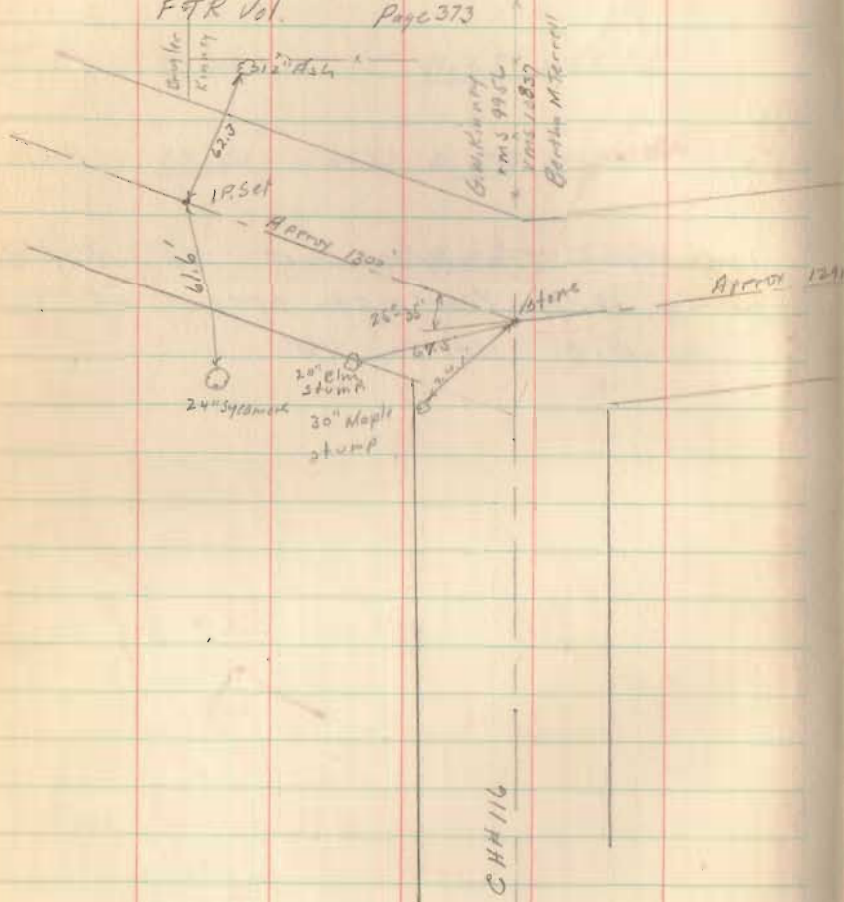 F & R Vol. Page 373
Kinney
12" Ash
G.W. Kinney
VMS 9956
VMS 10837
Bertha M. Terrell
62.3
I.P. Set
Approx 1300'
61.6'
Stone
Approx
25° 35'
67.5'
20" Elm
stump
24" Sycamore
30" Maple
stump
CHH 116